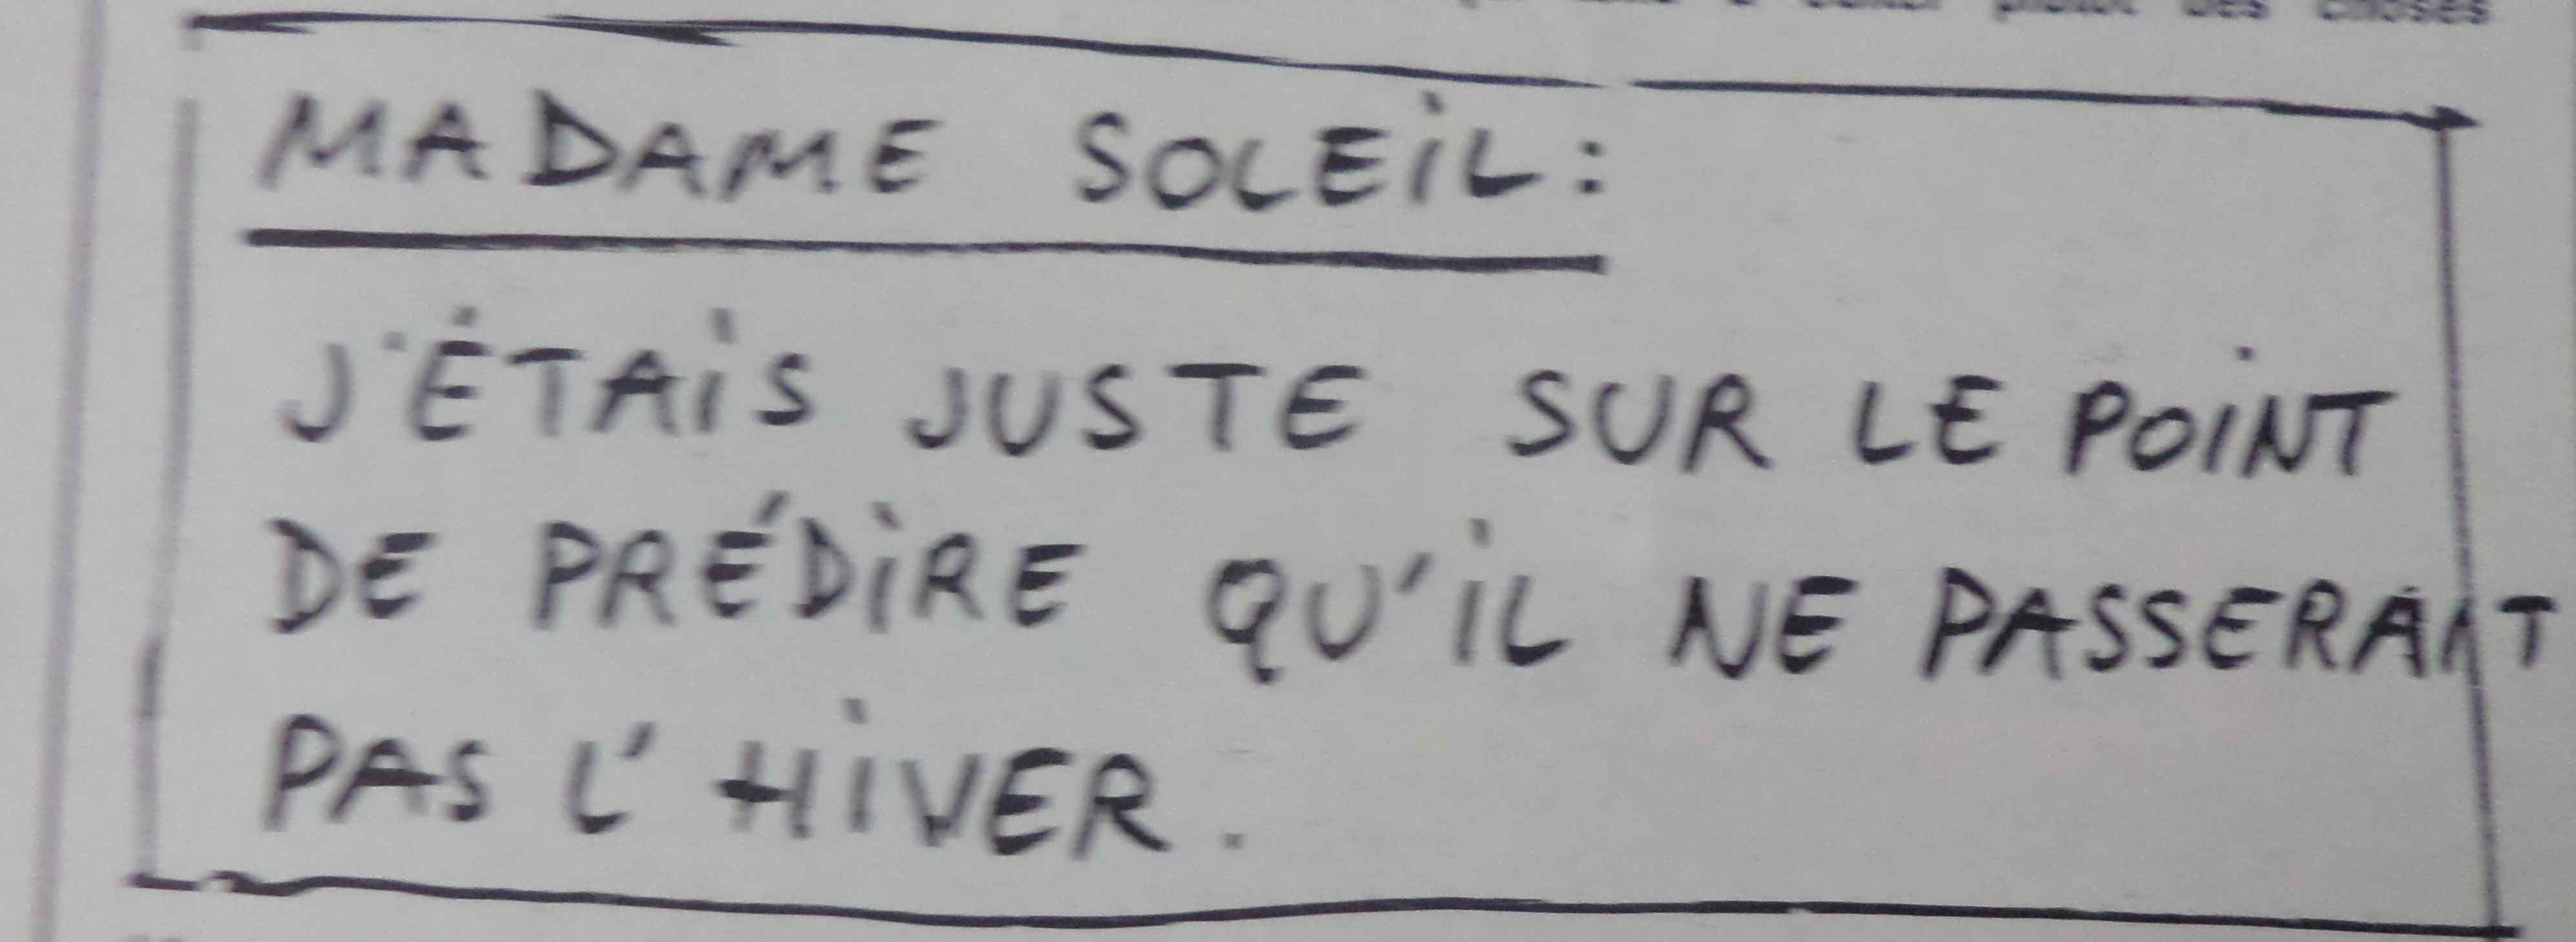 des choses
MADAME SOLEIL:
J'ÉTAIS JUSTE SUR LE POINT
DE PRÉDIRE QU'IL NE PASSERAIT
PAS L'HIVER.